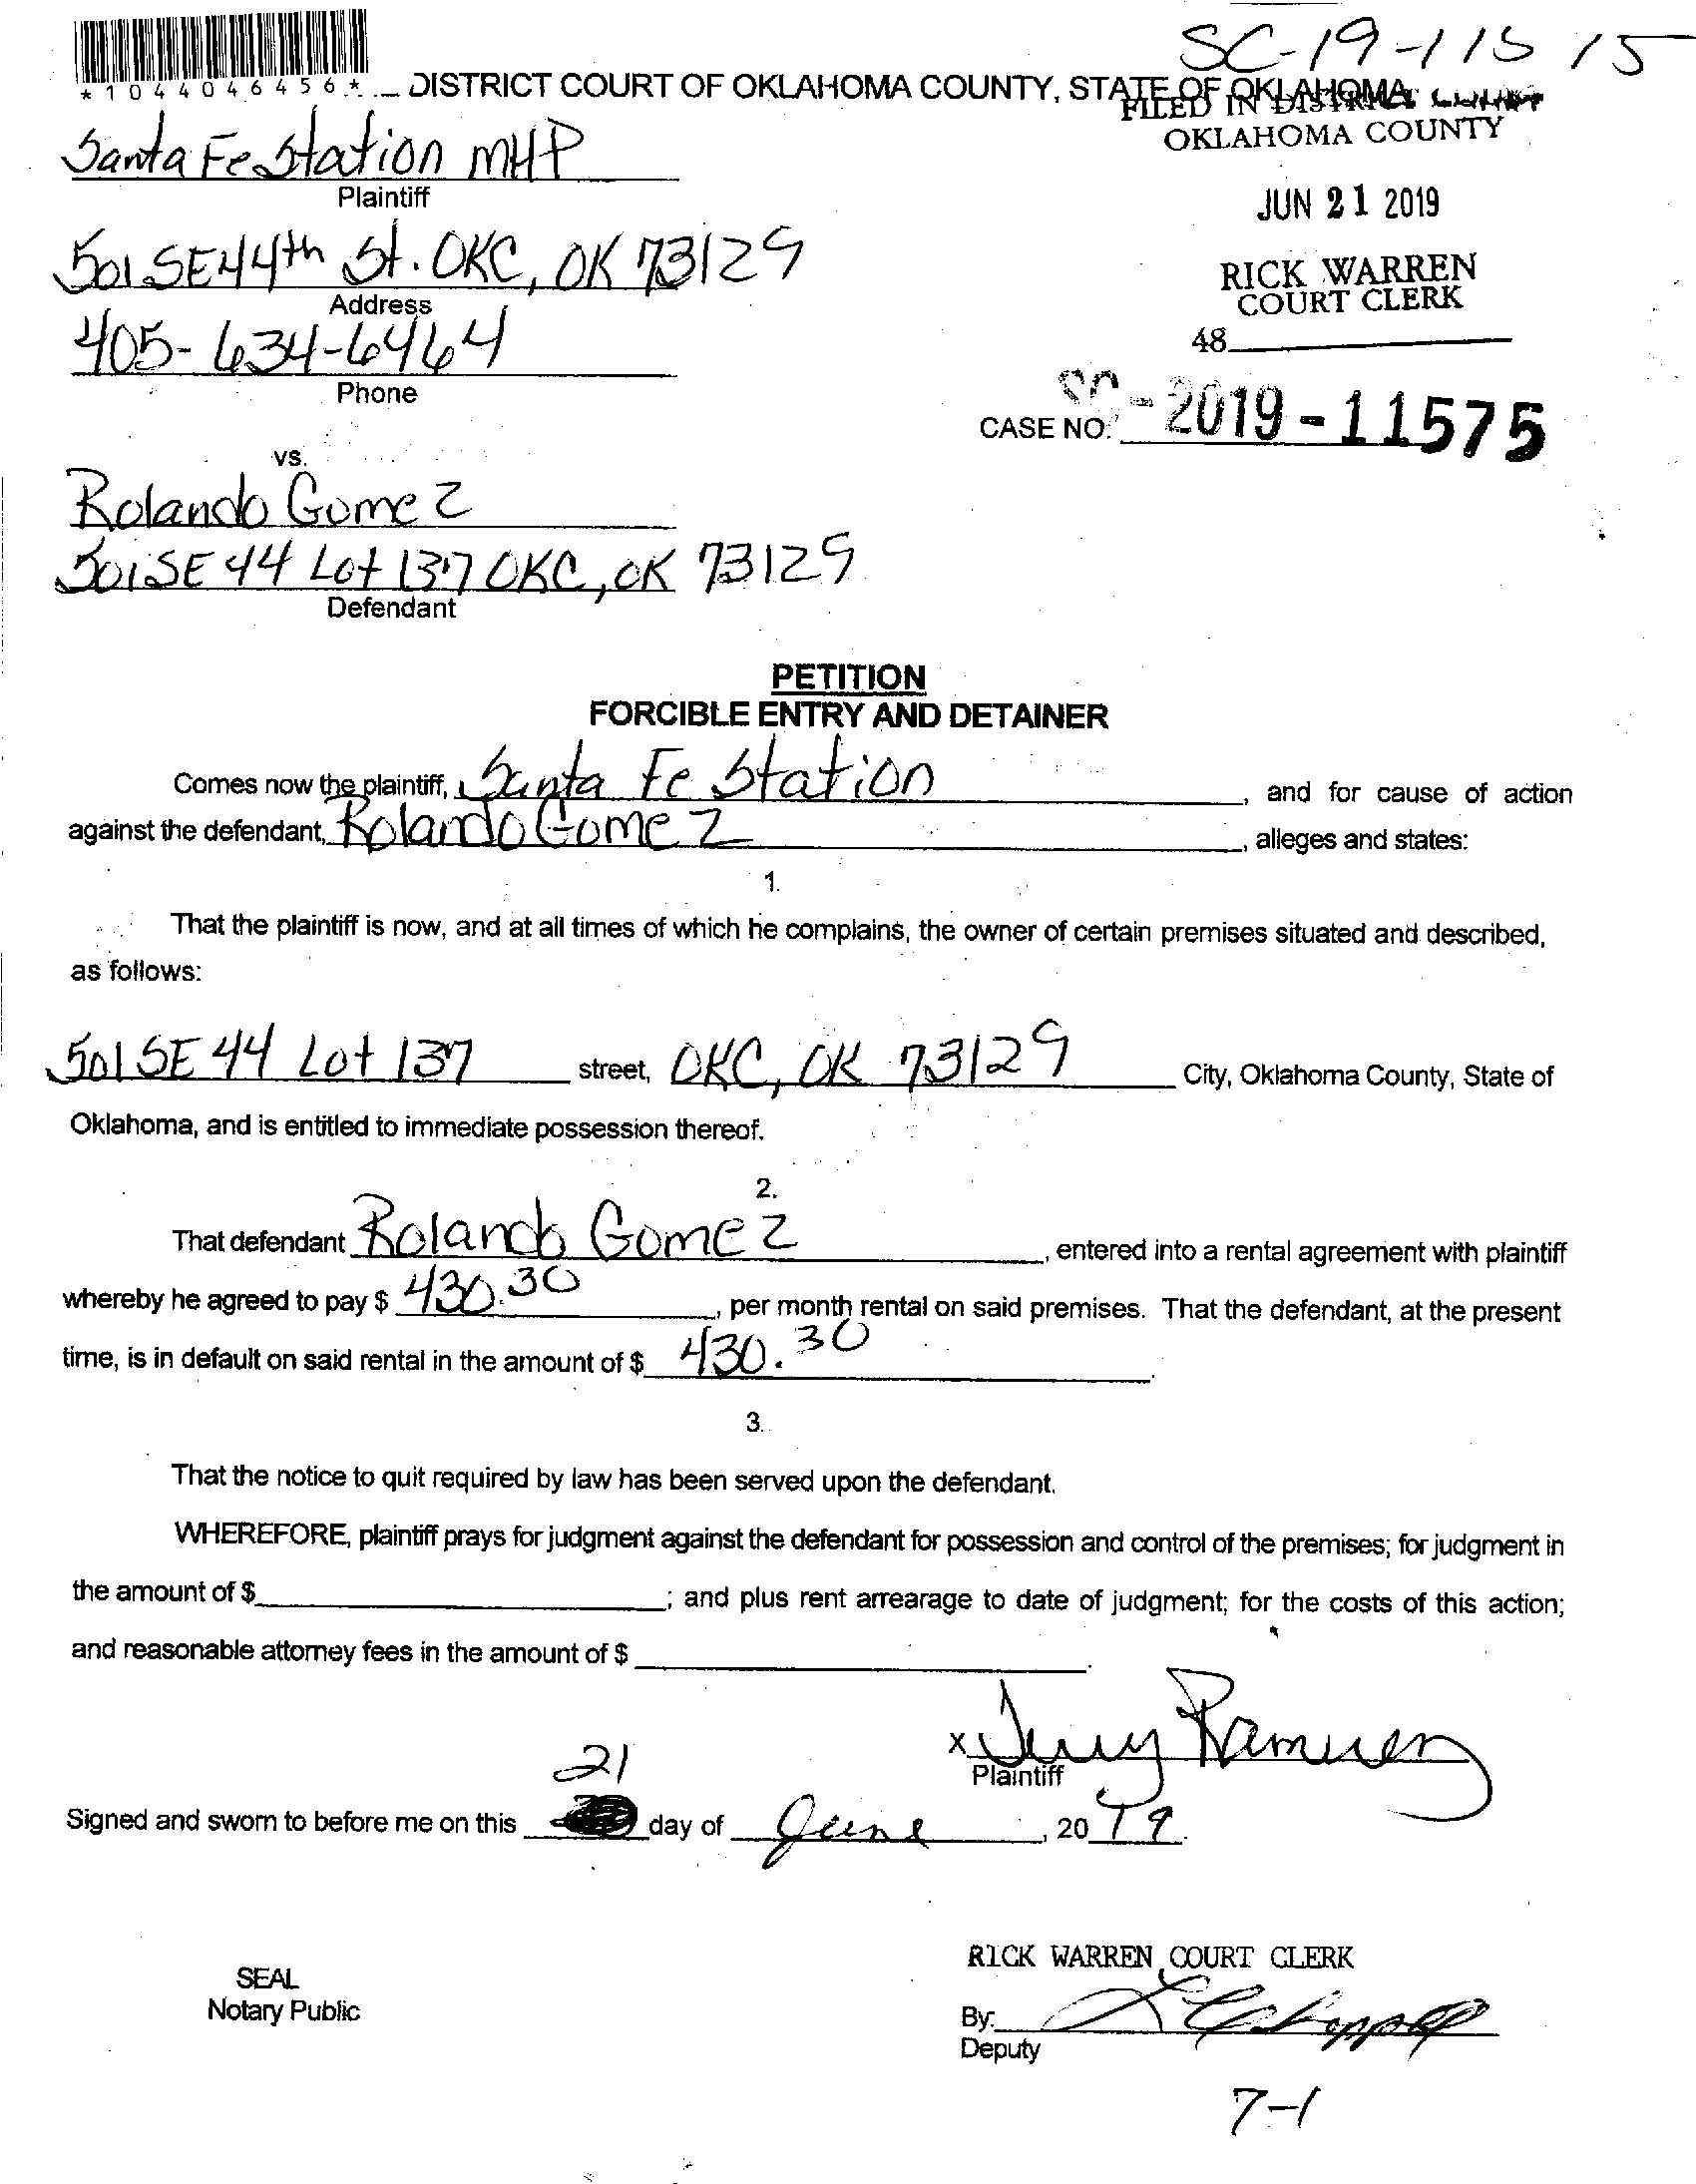 SC-19-115 15
*1044046456*
DISTRICT COURT OF OKLAHOMA COUNTY, STATE OF OKLAHOMA
FILED IN DISTRICT COURT
OKLAHOMA COUNTY
Santa Fe Station MHP
Plaintiff
JUN 21 2019
501 SE 44th St. OKC, OK 73129
Address
RICK WARREN
COURT CLERK
405-634-6464
Phone
48
CASE NO. SC-2019-11575
vs.
Rolando Gomez
501 SE 44 Lot 137 OKC, OK 73129
Defendant
PETITION
FORCIBLE ENTRY AND DETAINER
Comes now the plaintiff, Santa Fe Station, and for cause of action
against the defendant, Rolando Gomez, alleges and states:
1.
That the plaintiff is now, and at all times of which he complains, the owner of certain premises situated and described,
as follows:
501 SE 44 Lot 137 street, OKC, OK 73129 City, Oklahoma County, State of
Oklahoma, and is entitled to immediate possession thereof.
2.
That defendant Rolando Gomez, entered into a rental agreement with plaintiff
whereby he agreed to pay $ 430.30, per month rental on said premises. That the defendant, at the present
time, is in default on said rental in the amount of $ 430.30.
3.
That the notice to quit required by law has been served upon the defendant.
WHEREFORE, plaintiff prays for judgment against the defendant for possession and control of the premises; for judgment in
the amount of $ ; and plus rent arrearage to date of judgment; for the costs of this action;
and reasonable attorney fees in the amount of $ .
x Ramirez
Plaintiff
21
Signed and sworn to before me on this day of June, 2019.
RICK WARREN COURT CLERK
SEAL
Notary Public
By:
Deputy
7-1